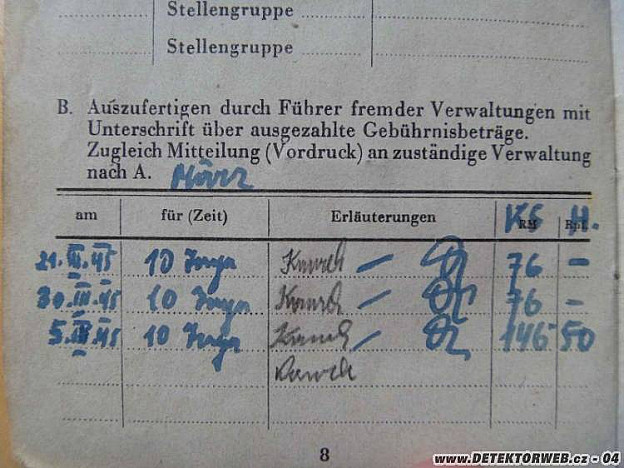 Stellengruppe
Stellengruppe
B. Auszufertigen durch Führer fremder Verwaltungen mit
Unterschrift über ausgezahlte Gebührnisbeträge.
Zugleich Mitteilung (Vordruck) an zuständige Verwaltung
nach A. März
am für (Zeit) Erläuterungen RM Rpf. H.
21. III. 45 10 76 –
30. III. 45 10 76 –
5. 45 10 146 50
8
www.DETEKTORWEB.cz - 04